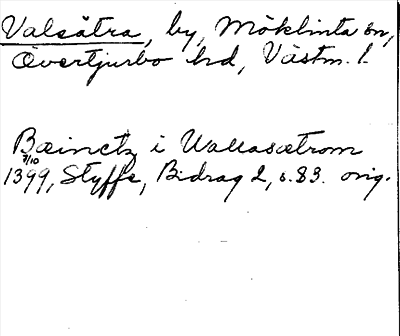 Valsätra, by, Möklinta sn,
Övertjurbo hd, Västm. l.
Bæinctz i Uallasætrom
7/10
1399, Styffe, Bidrag 2, s. 83. orig.